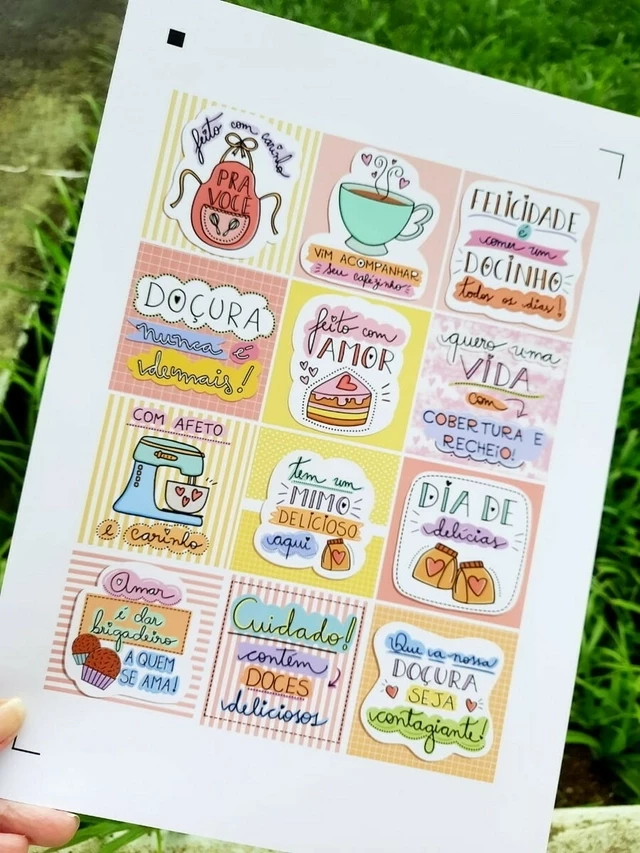 feito com carinho
PRA
VOCÊ
VIM ACOMPANHAR
seu cafézinho
FELICIDADE
é
comer um
DOCINHO
todos os dias!
DOÇURA
nunca é
demais!
feito com
AMOR
quero uma
VIDA
com
COBERTURA E
RECHEIO!
COM AFETO
e carinho
tem um
MIMO
DELICIOSO
aqui
DIA DE
delícias
Amar
é dar
brigadeiro
A QUEM
SE AMA!
Cuidado!
contém
DOCES
deliciosos
Que a nossa
DOÇURA
SEJA
contagiante!